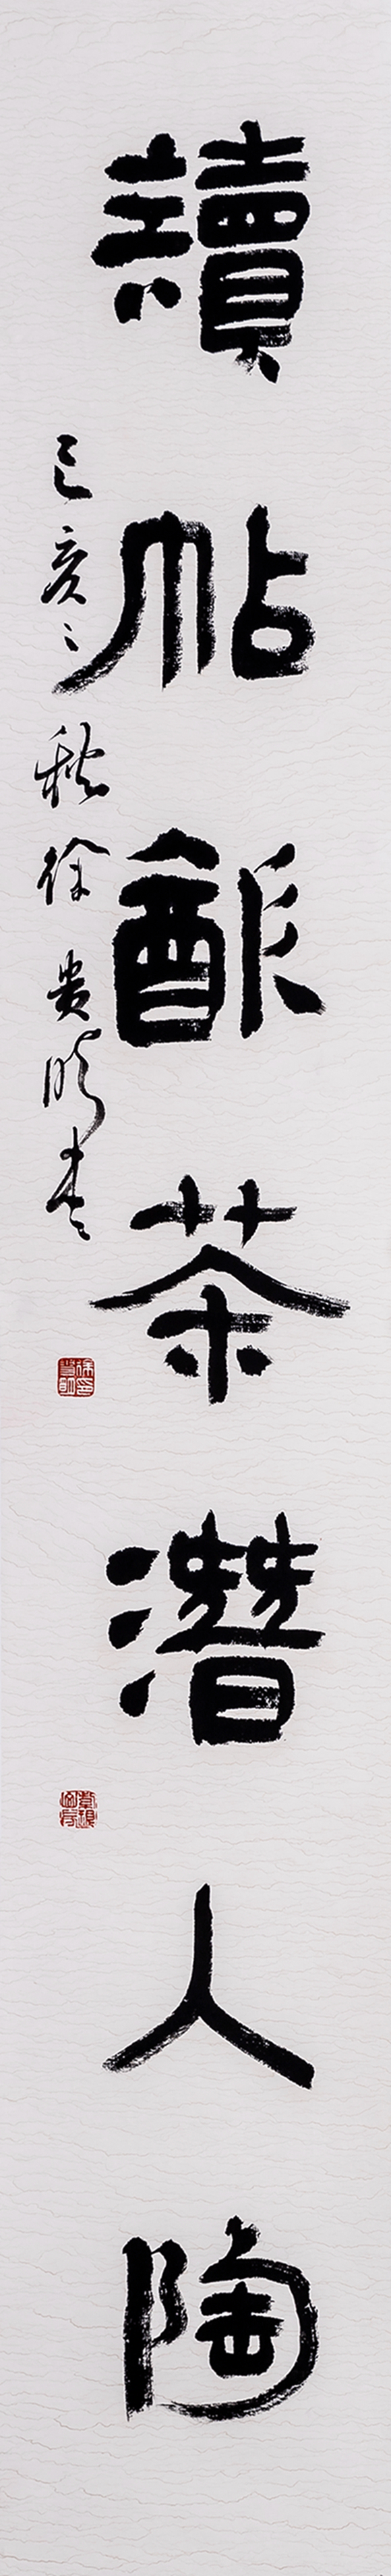 讀帖㱃茶潛人陶
己亥之秋徐贵明书